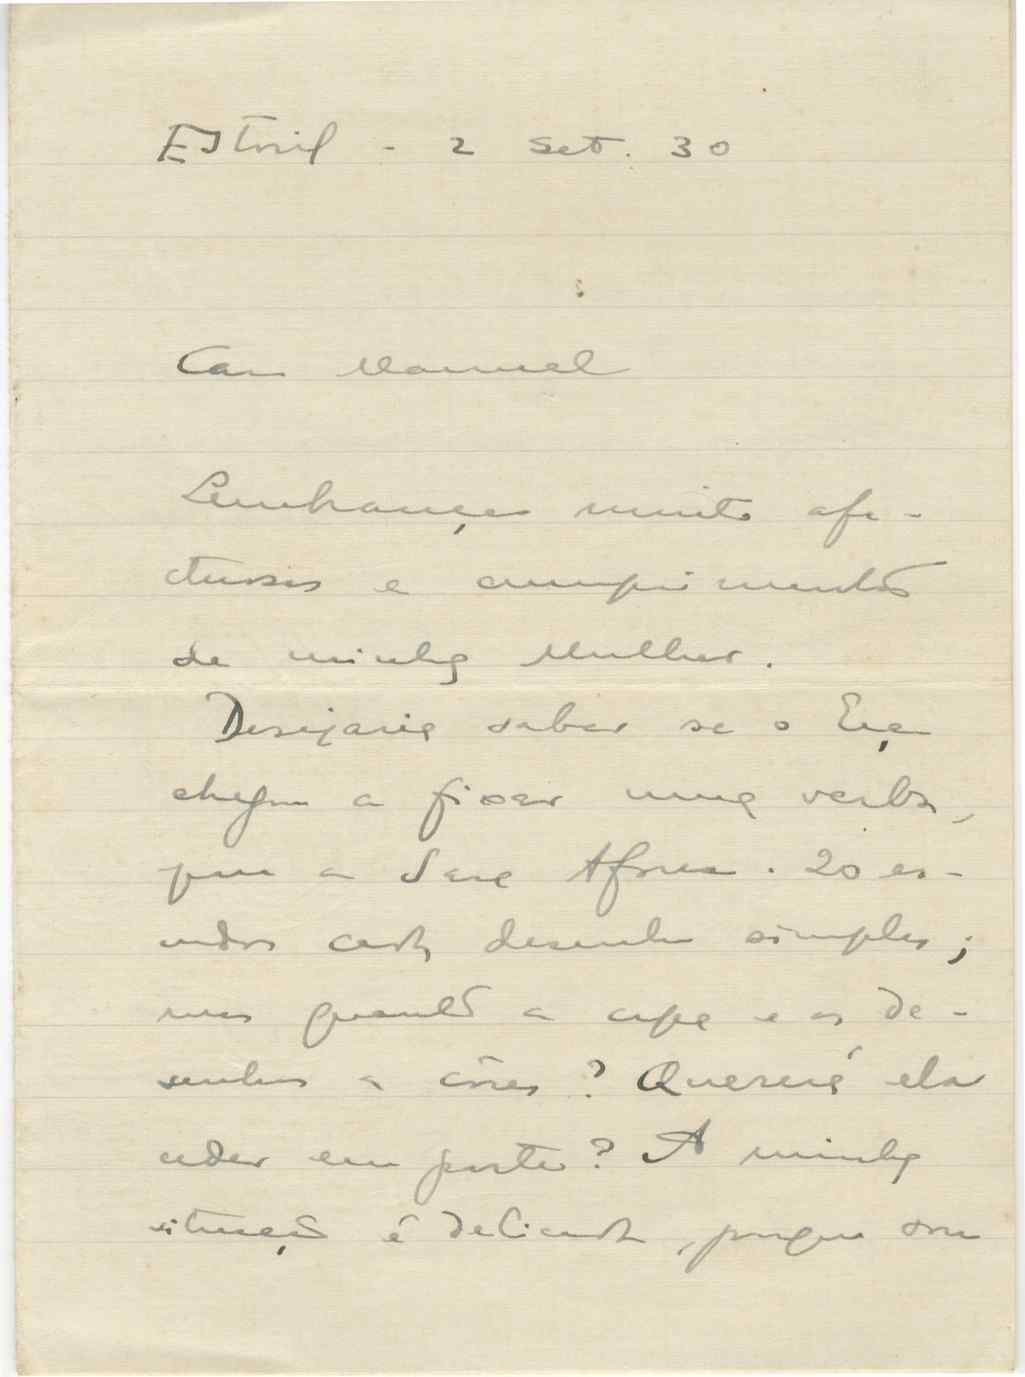 Estoril - 2 Set. 30
Caro Manuel
Lembranças muito afe-
ctuosas e cumprimentos
de minha Mulher.
Desejaria saber se o Eça
chegou a fixar uma verba,
para a Sara Afonso. 20 es-
cudos cada desenho simples;
mas quanto a capa e os de-
senhos a côres? Quererá ela
ceder em parte? A minha
situação é delicada, porque sou